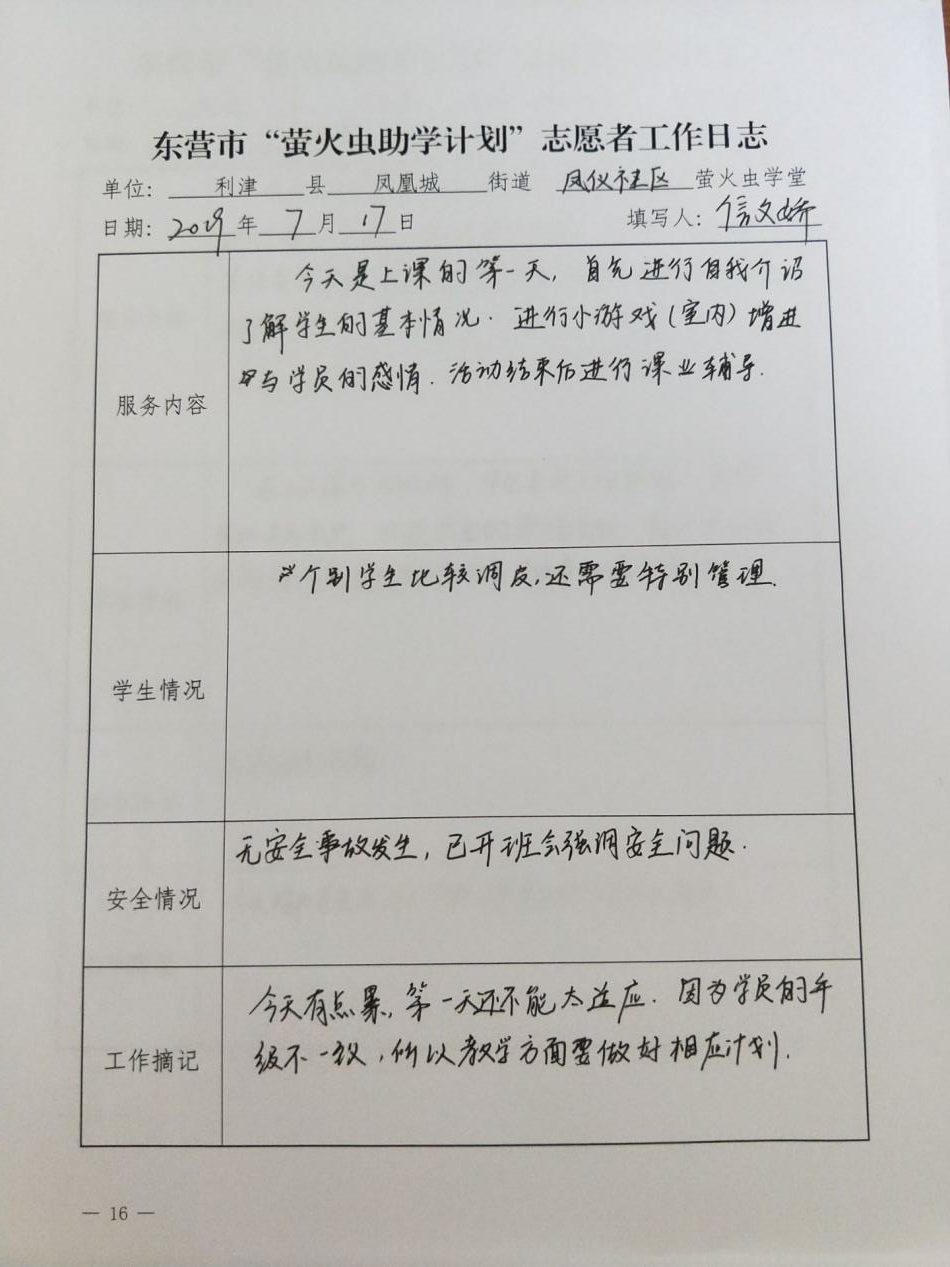 东营市“萤火虫助学计划”志愿者工作日志
单位： 利津 县 凤凰城 街道 凤仪社区 萤火虫学堂
日期：2019年7月17日 填写人：信文娇
服务内容
今天是上课的第一天，首先进行自我介绍
了解学生的基本情况．进行小游戏（室内）增进
与学员的感情．活动结束后进行课业辅导．
学生情况
个别学生比较调皮，还需要特别管理．
安全情况
无安全事故发生，已开班会强调安全问题．
工作摘记
今天有点累，第一天还不能太适应．因为学员的年
级不一致，所以教学方面要做好相应计划．
— 16 —